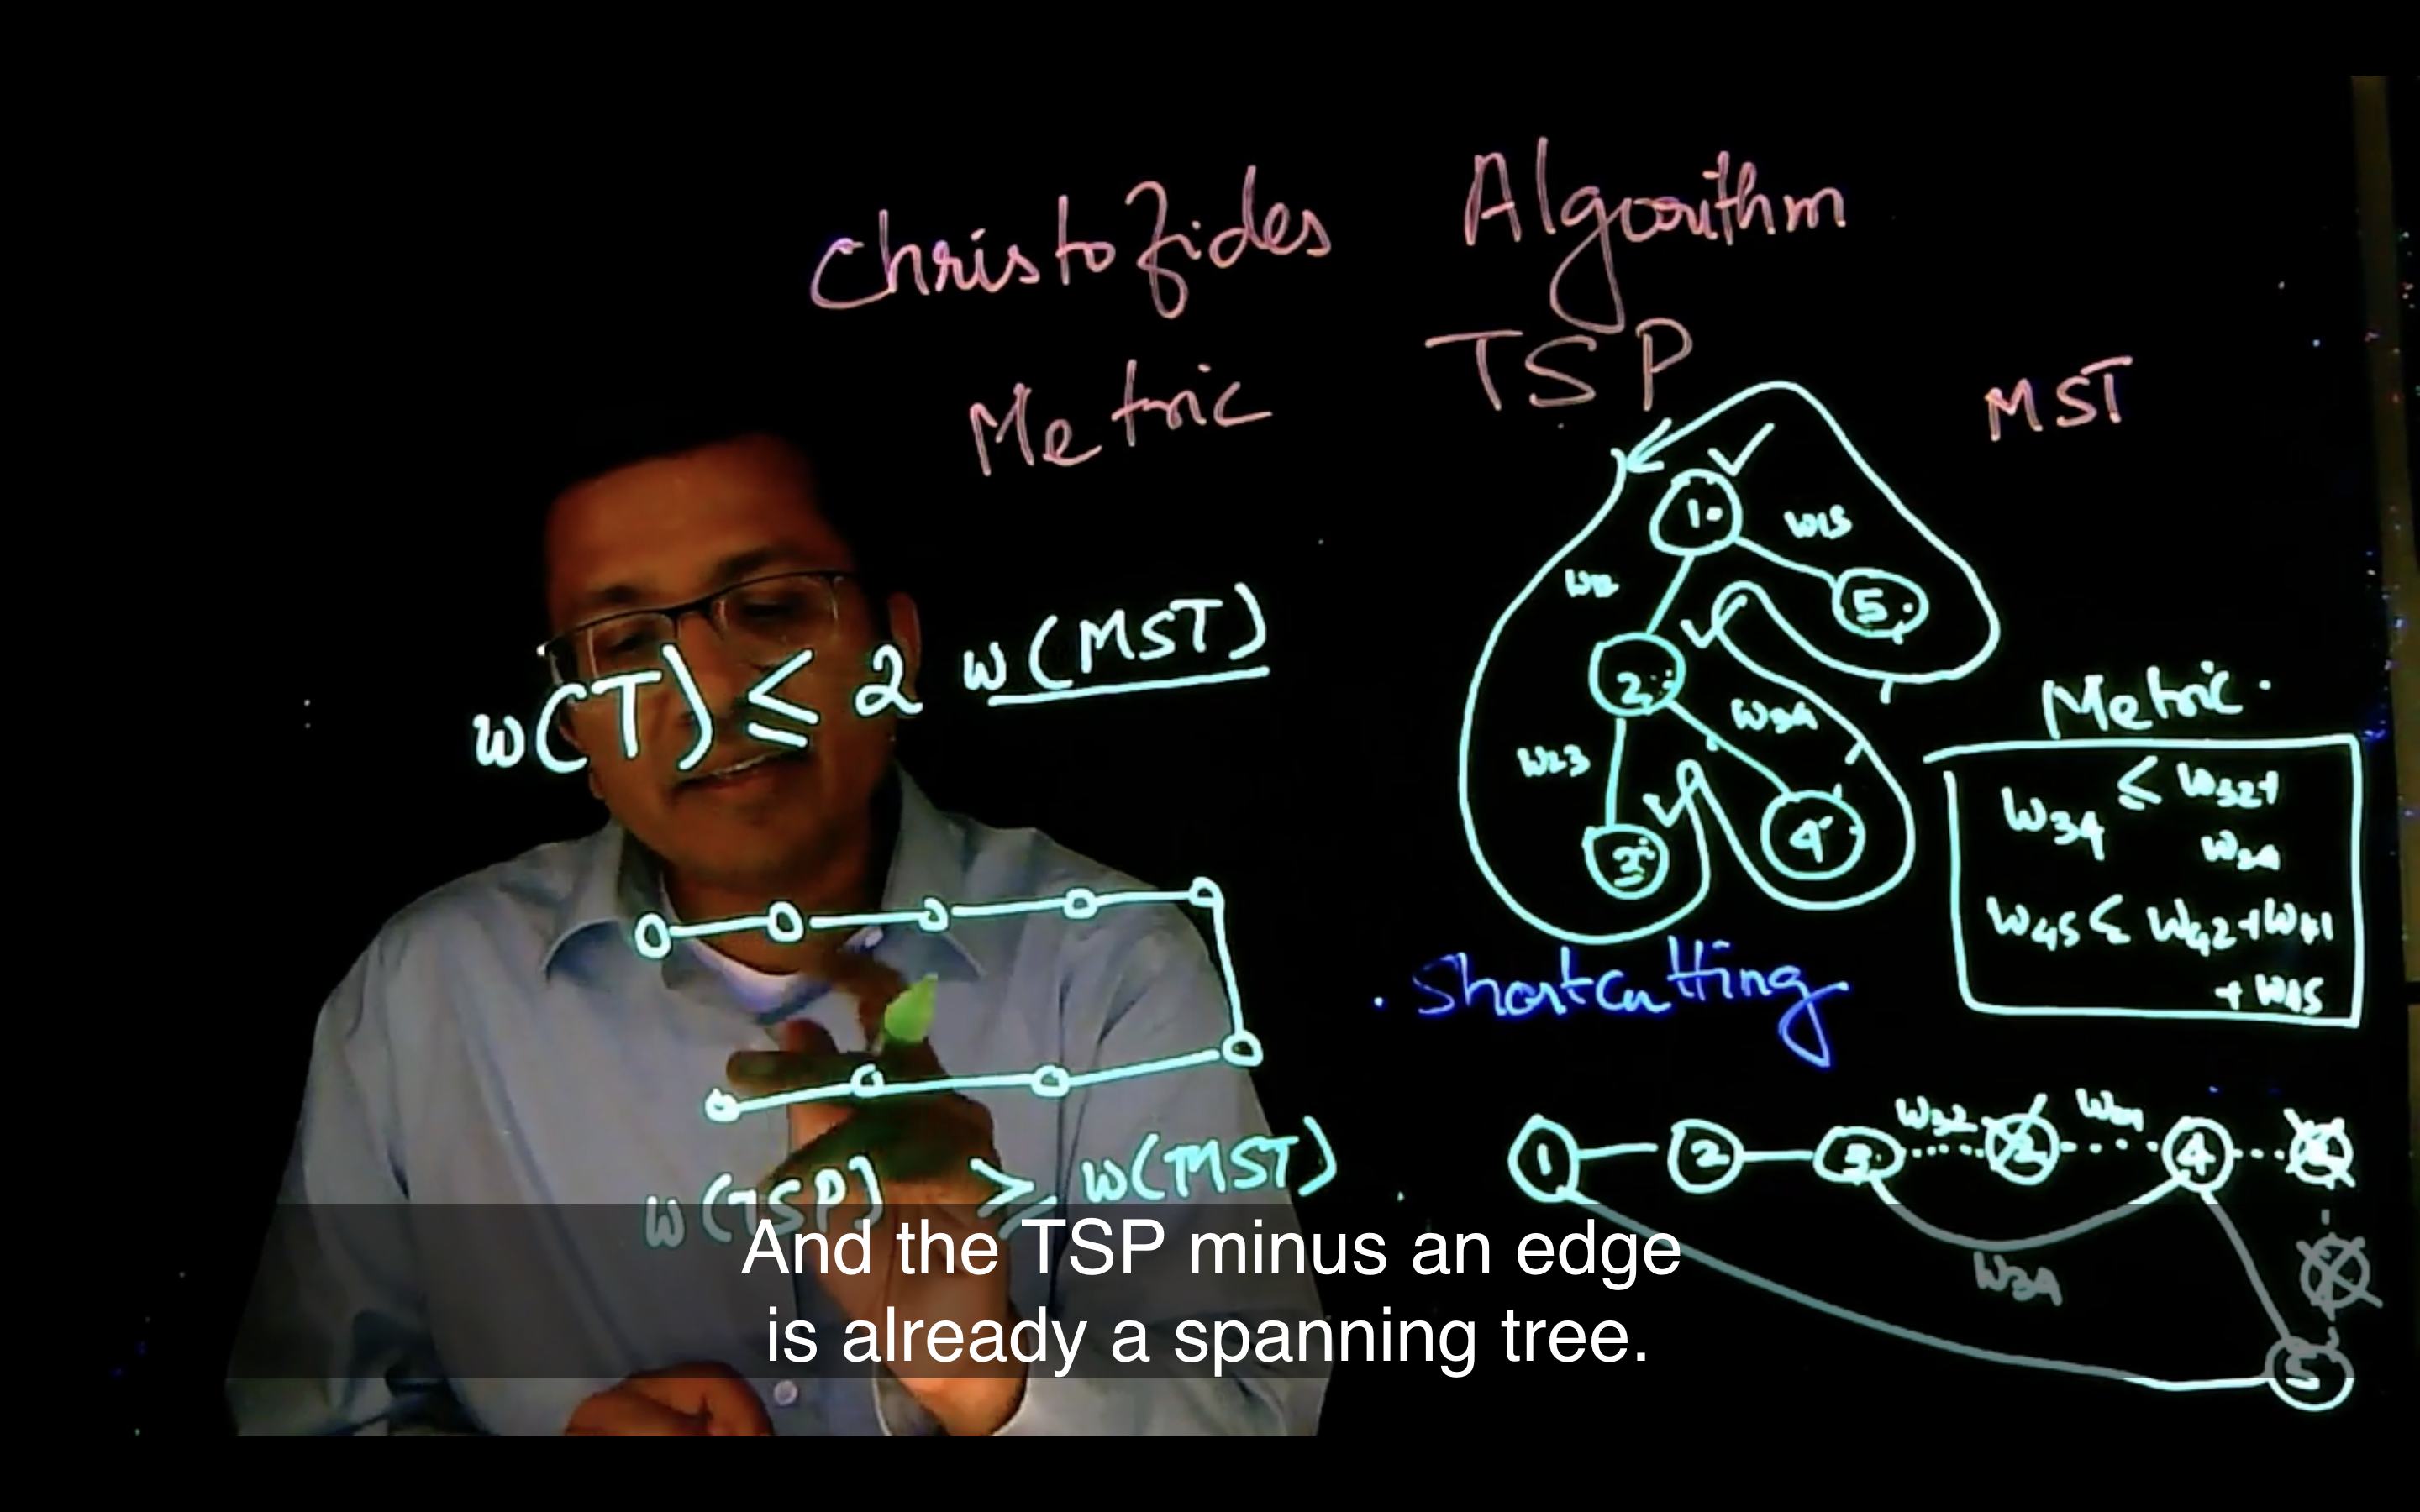 Christofides Algorithm
Metric TSP
MST
w(T) ≤ 2 w(MST)
w(TSP) ≥ w(MST)
1
w15
5
2
w23
3
4
Metric
w34 ≤ w32+
w45 ≤ w42+
+ w15
Shortcutting
1 2 3 w32 2 4
w34
5
And the TSP minus an edge
is already a spanning tree.